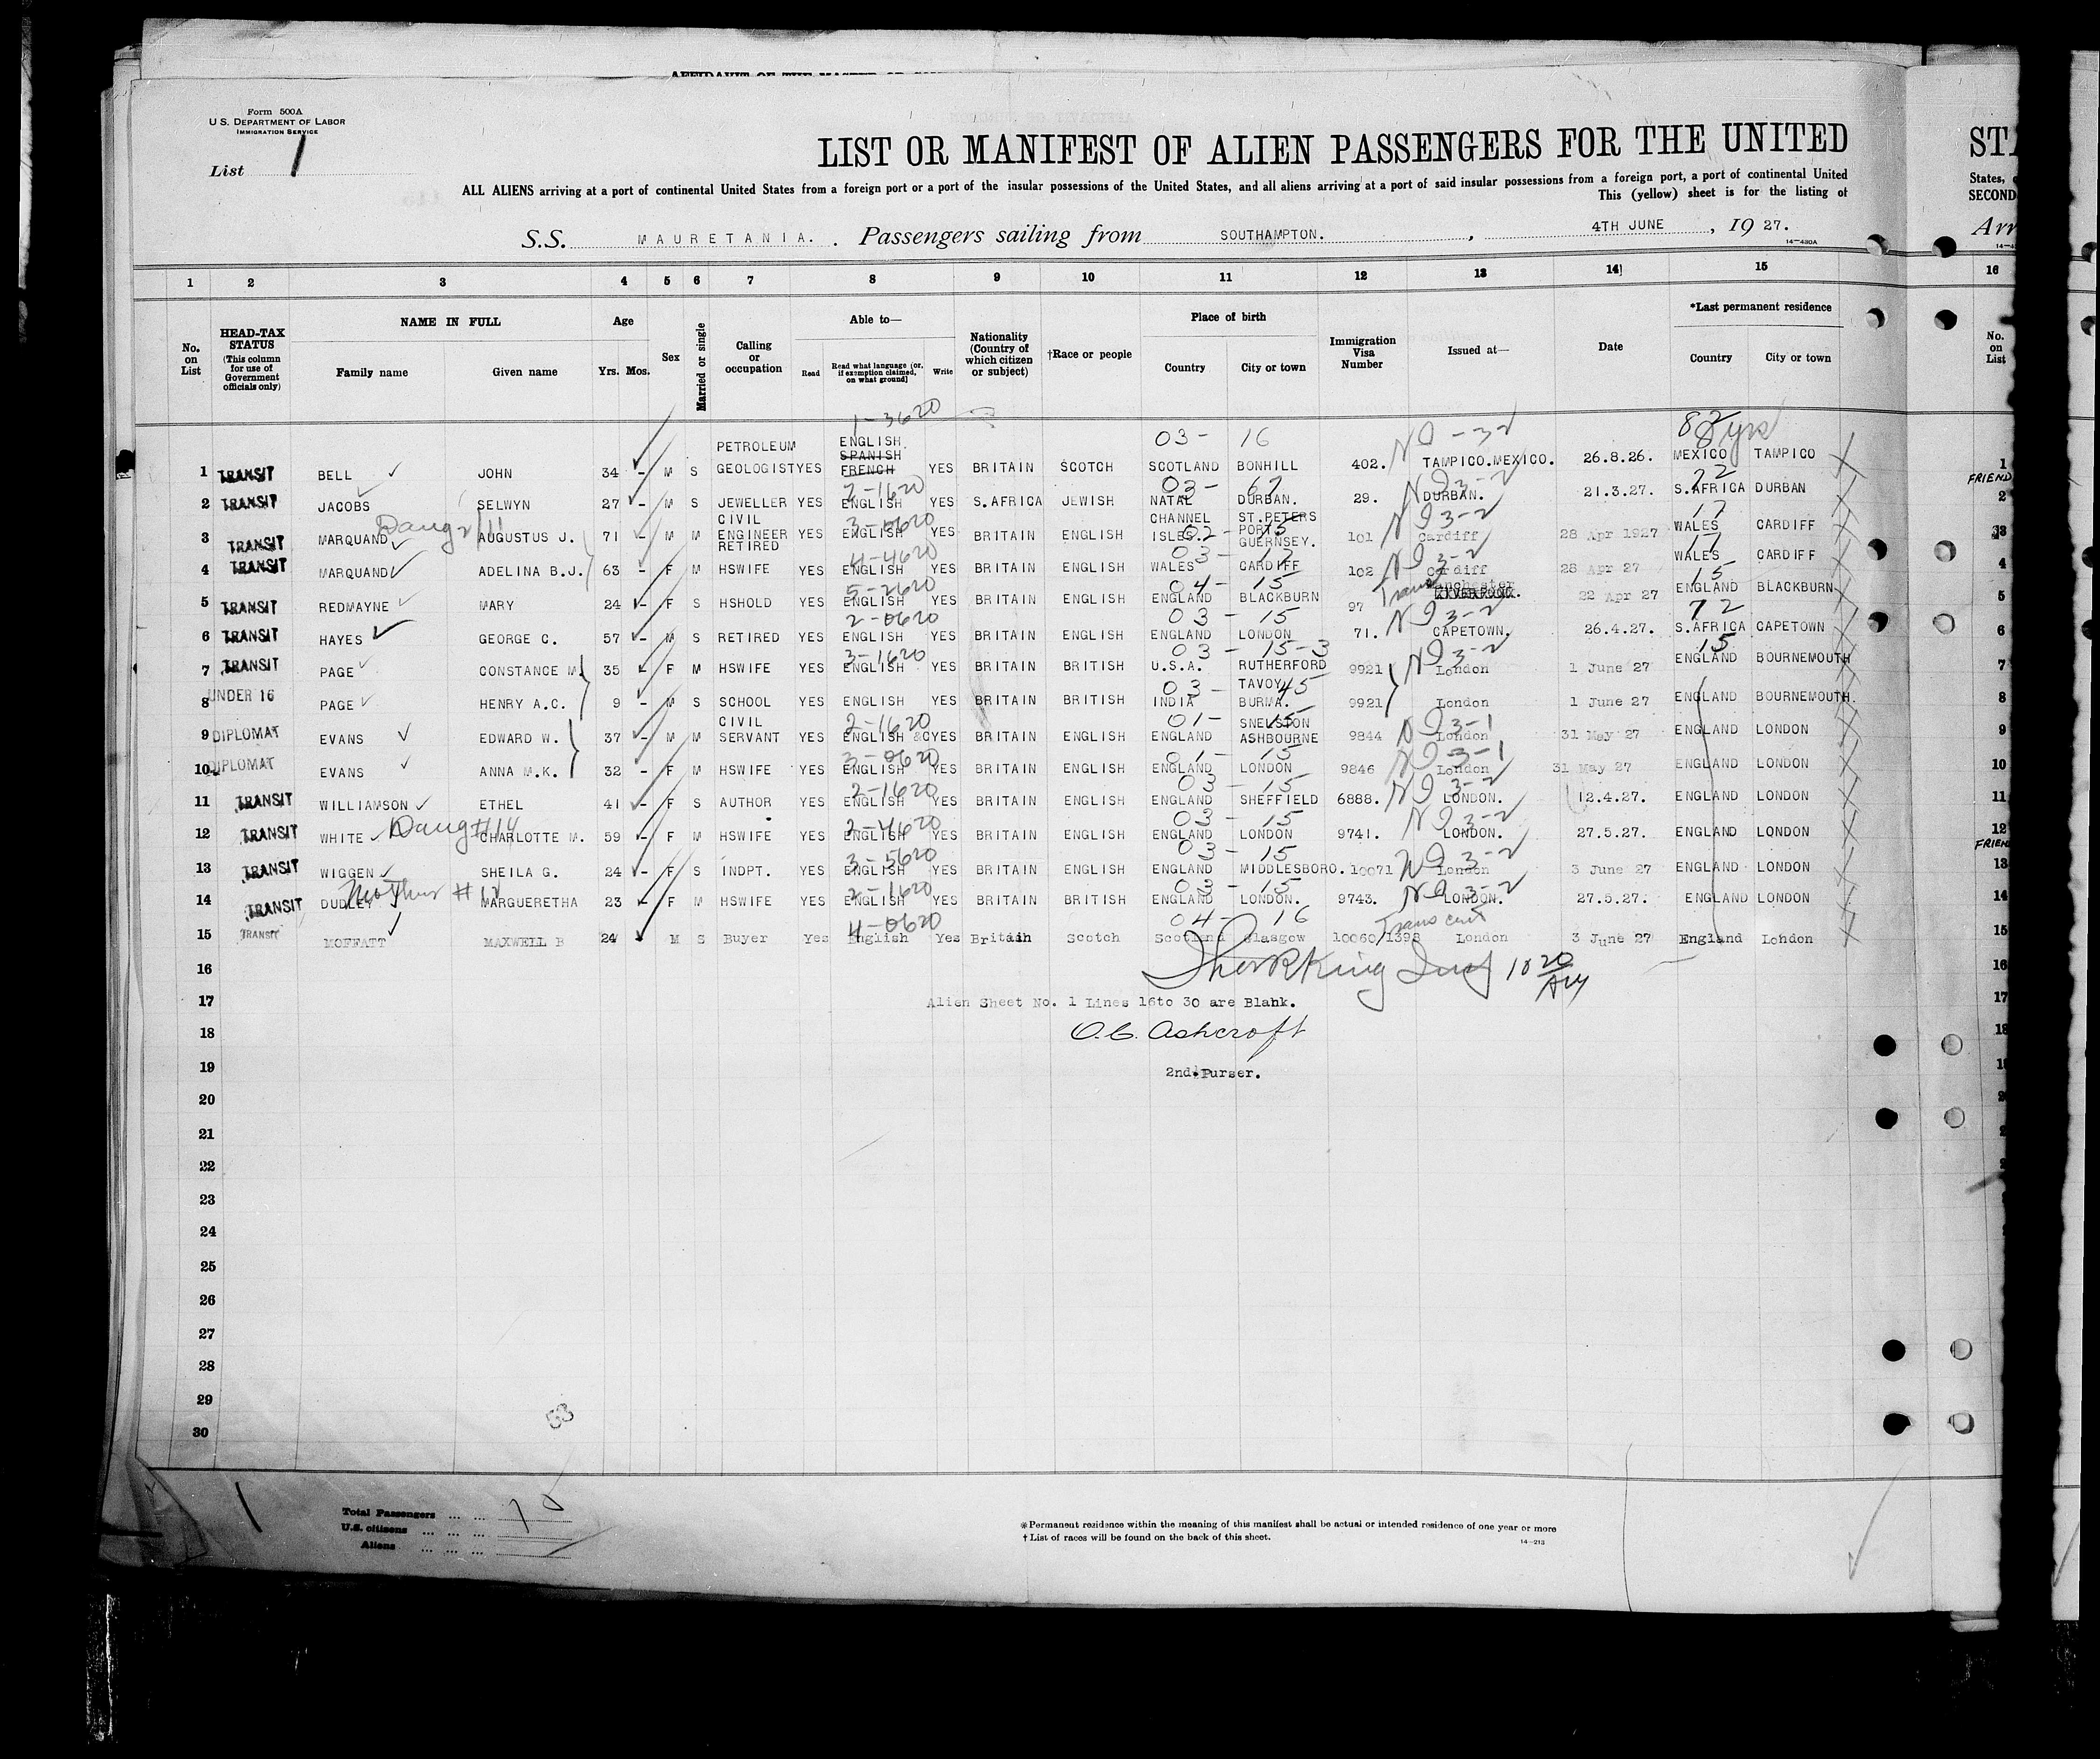 AFFIDAVIT OF THE MASTER OR
Form 500A
U.S. DEPARTMENT OF LABOR
IMMIGRATION SERVICE
List 1
LIST OR MANIFEST OF ALIEN PASSENGERS FOR THE UNITED
ALL ALIENS arriving at a port of continental United States from a foreign port or a port of the insular possessions of the United States, and all aliens arriving at a port of said insular possessions from a foreign port, a port of continental United
This (yellow) sheet is for the listing of
S.S. MAURETANIA. Passengers sailing from SOUTHAMPTON. , 4TH JUNE , 19 27.
14—430A
1 2 3 4 5 6 7 8 9 10 11 12 13 14 15
No. on List
HEAD-TAX STATUS (This column for use of Government officials only)
NAME IN FULL
Family name Given name
Age
Yrs. Mos.
Sex
Married or single
Calling or occupation
Able to—
Read
Read what language (or, if exemption claimed, on what ground)
Write
Nationality (Country of which citizen or subject)
†Race or people
Place of birth
Country City or town
Immigration Visa Number
Issued at—
Date
*Last permanent residence
Country City or town
1-3620 03- 16 8 yrs
1 TRANSIT BELL JOHN 34 - M S PETROLEUM GEOLOGIST YES ENGLISH SPANISH FRENCH YES BRITAIN SCOTCH SCOTLAND BONHILL 402. TAMPICO.MEXICO. 26.8.26. MEXICO TAMPICO
2-1620 03- 67 72
2 TRANSIT JACOBS SELWYN 27 - M S JEWELLER YES ENGLISH YES S.AFRICA JEWISH NATAL DURBAN. 29. DURBAN. 21.3.27. S.AFRICA DURBAN
3 TRANSIT MARQUAND AUGUSTUS J. 71 - M M CIVIL ENGINEER RETIRED YES ENGLISH YES BRITAIN ENGLISH CHANNEL ISLES. ST.PETERS PORT GUERNSEY. 101 Cardiff 28 Apr 1927 WALES CARDIFF
4-4620 03- 17
4 TRANSIT MARQUAND ADELINA B.J. 63 - F M HSWIFE YES ENGLISH YES BRITAIN ENGLISH WALES CARDIFF 102 Cardiff 28 Apr 27 WALES CARDIFF
5-2620 04- 15 15
5 TRANSIT REDMAYNE MARY 24 - F S HSHOLD YES ENGLISH YES BRITAIN ENGLISH ENGLAND BLACKBURN 97 Manchester 22 Apr 27 ENGLAND BLACKBURN
2-0620 03- 15 72
6 TRANSIT HAYES GEORGE C. 57 - M S RETIRED YES ENGLISH YES BRITAIN ENGLISH ENGLAND LONDON 71. CAPETOWN. 26.4.27. S.AFRICA CAPETOWN
3-1620 03- 15-3 15
7 TRANSIT PAGE CONSTANCE M. 35 - F M HSWIFE YES ENGLISH YES BRITAIN BRITISH U.S.A. RUTHERFORD 9921 London 1 June 27 ENGLAND BOURNEMOUTH
03- 45
8 UNDER 16 PAGE HENRY A.C. 9 - M S SCHOOL YES ENGLISH YES BRITAIN BRITISH INDIA TAVOY BURMA. 9921 London 1 June 27 ENGLAND BOURNEMOUTH.
2-1620 01- 15
9 DIPLOMAT EVANS EDWARD W. 37 - M M CIVIL SERVANT YES ENGLISH &C YES BRITAIN ENGLISH ENGLAND SNELSTON ASHBOURNE 9844 London 31 May 27 ENGLAND LONDON
3-0620 01- 15
10 DIPLOMAT EVANS ANNA M.K. 32 - F M HSWIFE YES ENGLISH YES BRITAIN ENGLISH ENGLAND LONDON 9846 London 31 May 27 ENGLAND LONDON
2-1620 03- 15
11 TRANSIT WILLIAMSON ETHEL 41 - F S AUTHOR YES ENGLISH YES BRITAIN ENGLISH ENGLAND SHEFFIELD 6888. LONDON. 12.4.27. ENGLAND LONDON
2-4620 03- 15
12 TRANSIT WHITE Daug #14 CHARLOTTE M. 59 - F M HSWIFE YES ENGLISH YES BRITAIN ENGLISH ENGLAND LONDON 9741. LONDON. 27.5.27. ENGLAND LONDON
3-5620 03- 15
13 TRANSIT WIGGEN SHEILA G. 24 - F S INDPT. YES ENGLISH YES BRITAIN ENGLISH ENGLAND MIDDLESBORO. 10071 London 3 June 27 ENGLAND LONDON
Mother #12 2-1620 03- 15
14 TRANSIT DUDLEY MARGUERETHA 23 - F M HSWIFE YES ENGLISH YES BRITAIN BRITISH ENGLAND LONDON. 9743. LONDON. 27.5.27. ENGLAND LONDON
4-0620 04- 16
15 TRANSIT MOFFATT MAXWELL B 24 M S Buyer Yes English Yes Britain Scotch Scotland Glasgow 10060/1398 London 3 June 27 England London
16
17 Alien Sheet No. 1 Lines 16to 30 are Blank.
18 O.C. Ashcroft
19 2nd.Purser.
20
21
22
23
24
25
26
27
28
29
30
Total Passengers
U.S. citizens
Aliens
*Permanent residence within the meaning of this manifest shall be actual or intended residence of one year or more
† List of races will be found on the back of this sheet.
14—213